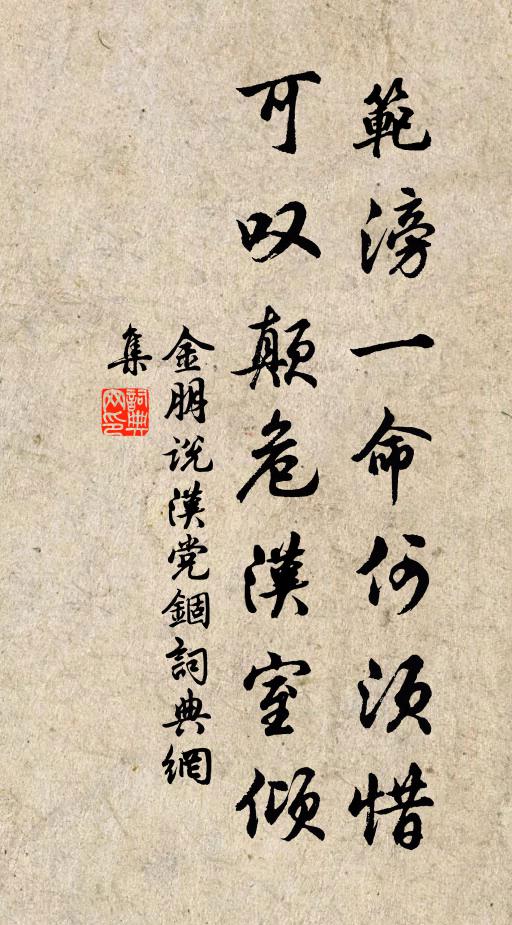 範滂一命何須惜
可叹顛危漢室傾
金朋説漢党錮詞典網
集
詞典
網印